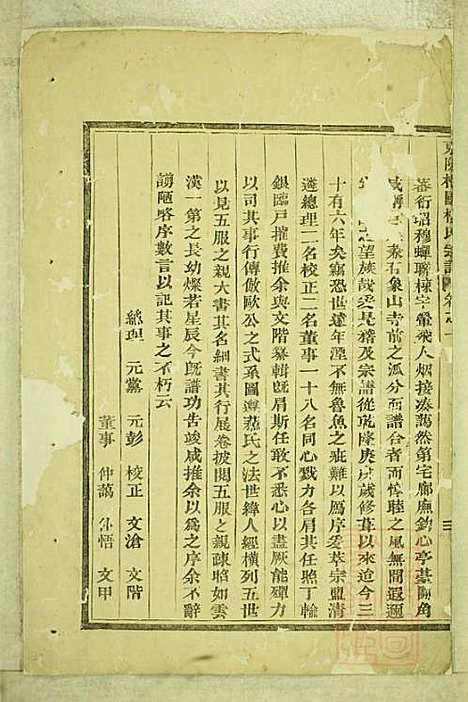 蕃衍昭穆蟬聯棟宇翬飛人烟接湊蔼然第宅廊廡鈎心亭臺鬪角
石象山寺前之派分而譜合者而惇睦之風無間遐邇
之望族哉爰是稽及宗譜從乾隆庚戌歲修葺以來迨今三
十有六年矣竊恐世遠年湮不無魯魚之疵難以爲序爰萃宗盟清
遴總理二名校正二名董事一十八名同心戮力各肩其任照丁輸
銀臨戸摧費推余與文階纂輯旣肩斯任敢不悉心以盡厥能殫力
以司其事行傳倣歐公之式系圖遵蘇氏之法世緯人經橫列五世
以見五服之親大書其名細書其行展卷披閱五服之親疎昭如雲
漢一第之長幼燦若星辰今旣譜功告竣咸推余以爲之序余不辭
謭陋畧序數言以記其事之不朽云
總理 元黨 元彭 校正 文滄 文階
董事 仲謁 悟 文甲